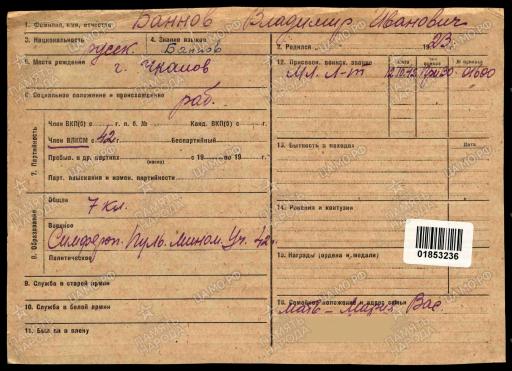 1. Фамилия, имя, отчество Баннов Владимир Иванович
3. Национальность русск 4. Знание языков
5. Место рождения
г. Чкалов
6. Социальное положение и происхождение
раб.
7. Партийность
Член ВКП(б) с г. п. б. № Канд. ВКП(б) с г.
Член ВЛКСМ с 42 г. Беспартийный
Пребыв. в др. партиях с 19 по 19 г.
(каких)
Парт. взыскания и измен. партийности
8. Образование
Общее
7 кл.
Военное
Симфероп. Пуль. Мином. Уч. 42 г.
Политическое
9. Служба в старой армии
10. Служба в белой армии
11. Был ли в плену
2. Родился 1923
12. Присвоен. воинск. звание
№ приказа
Мл. Л-т
13. Бытность в походах
Дата
14. Ранения и контузии
15. Награды (ордена и медали)
01853236
16. Семейное положение и адрес семьи
Мать — Мария Вас.
ПАМЯТЬ НАРОДА
ЦАМО.РФ